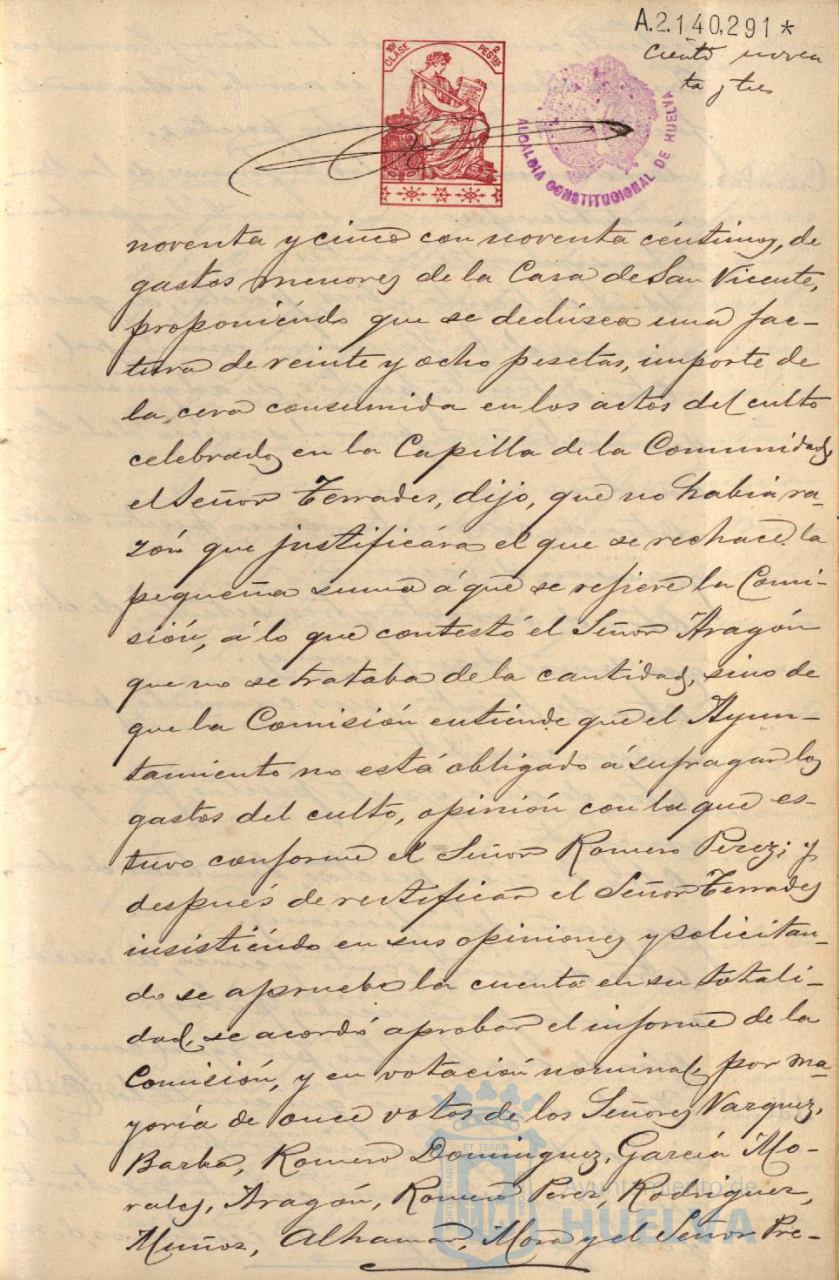 A.2.140.291*
ciento noven
ta y tres
10ª CLASE 2 PESETAS
ALCALDIA CONSTITUCIONAL DE HUELVA
noventa y cinco con noventa céntimos, de
gastos menores de la Casa de San Vicente,
proponiéndo que se dedúzca una fac-
tura de veinte y ocho pesetas, importe de
la cera consumida en los actos del culto
celebrados en la Capilla de la Comunidad,
el Señor Terrades, dijo, que no habia ra-
zón que justificára el que se rechace la
pequeña suma á que se refiere la Comi-
sión, á lo que contestó el Señor Aragón
que no se trataba de la cantidad, sino de
que la Comisión entiende que el Ayun-
tamiento no está obligado á sufragar los
gastos del culto, opinión con la que es-
tuvo conforme el Señor Romero Perez; y
después de rectificar el Señor Terrades
insistiéndo en sus opiniones y solicitan-
do se apruebe la cuenta en su totali-
dad, se acordó aprobar el informe de la
Comisión, y en votación nominal, por ma-
yoría de once votos de los Señores Vazquez,
Barba, Romero Dominguez, García Mo-
rales, Aragón, Romero Perez, Rodriguez,
Muñoz, Alhamar, Mora y el Señor Pre-
Ayuntamiento de
HUELVA